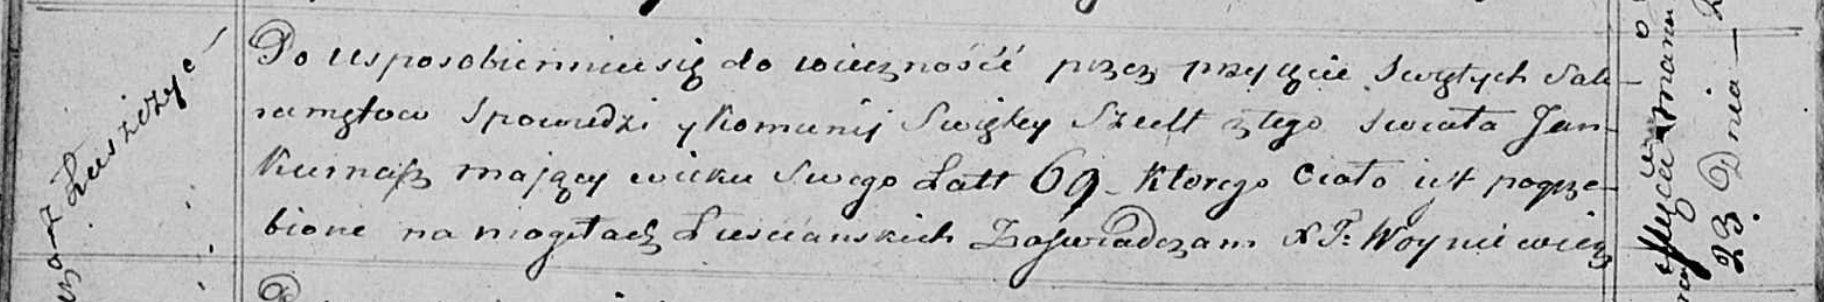 Po usposobienniu się do wieczność przez przyięcie Swiętych Sak-
ramętow Spowiedzi y Komunij Swiętey Szedt z tego swiata Jan
Kurnasz mający wieku Swego Latt 69. Ktorego Ciało iest pogrze-
bione na mogiłach Lusciańskich Zaswiadczam X F: Woyniewicz
Łuszczyć
23 Dnia —